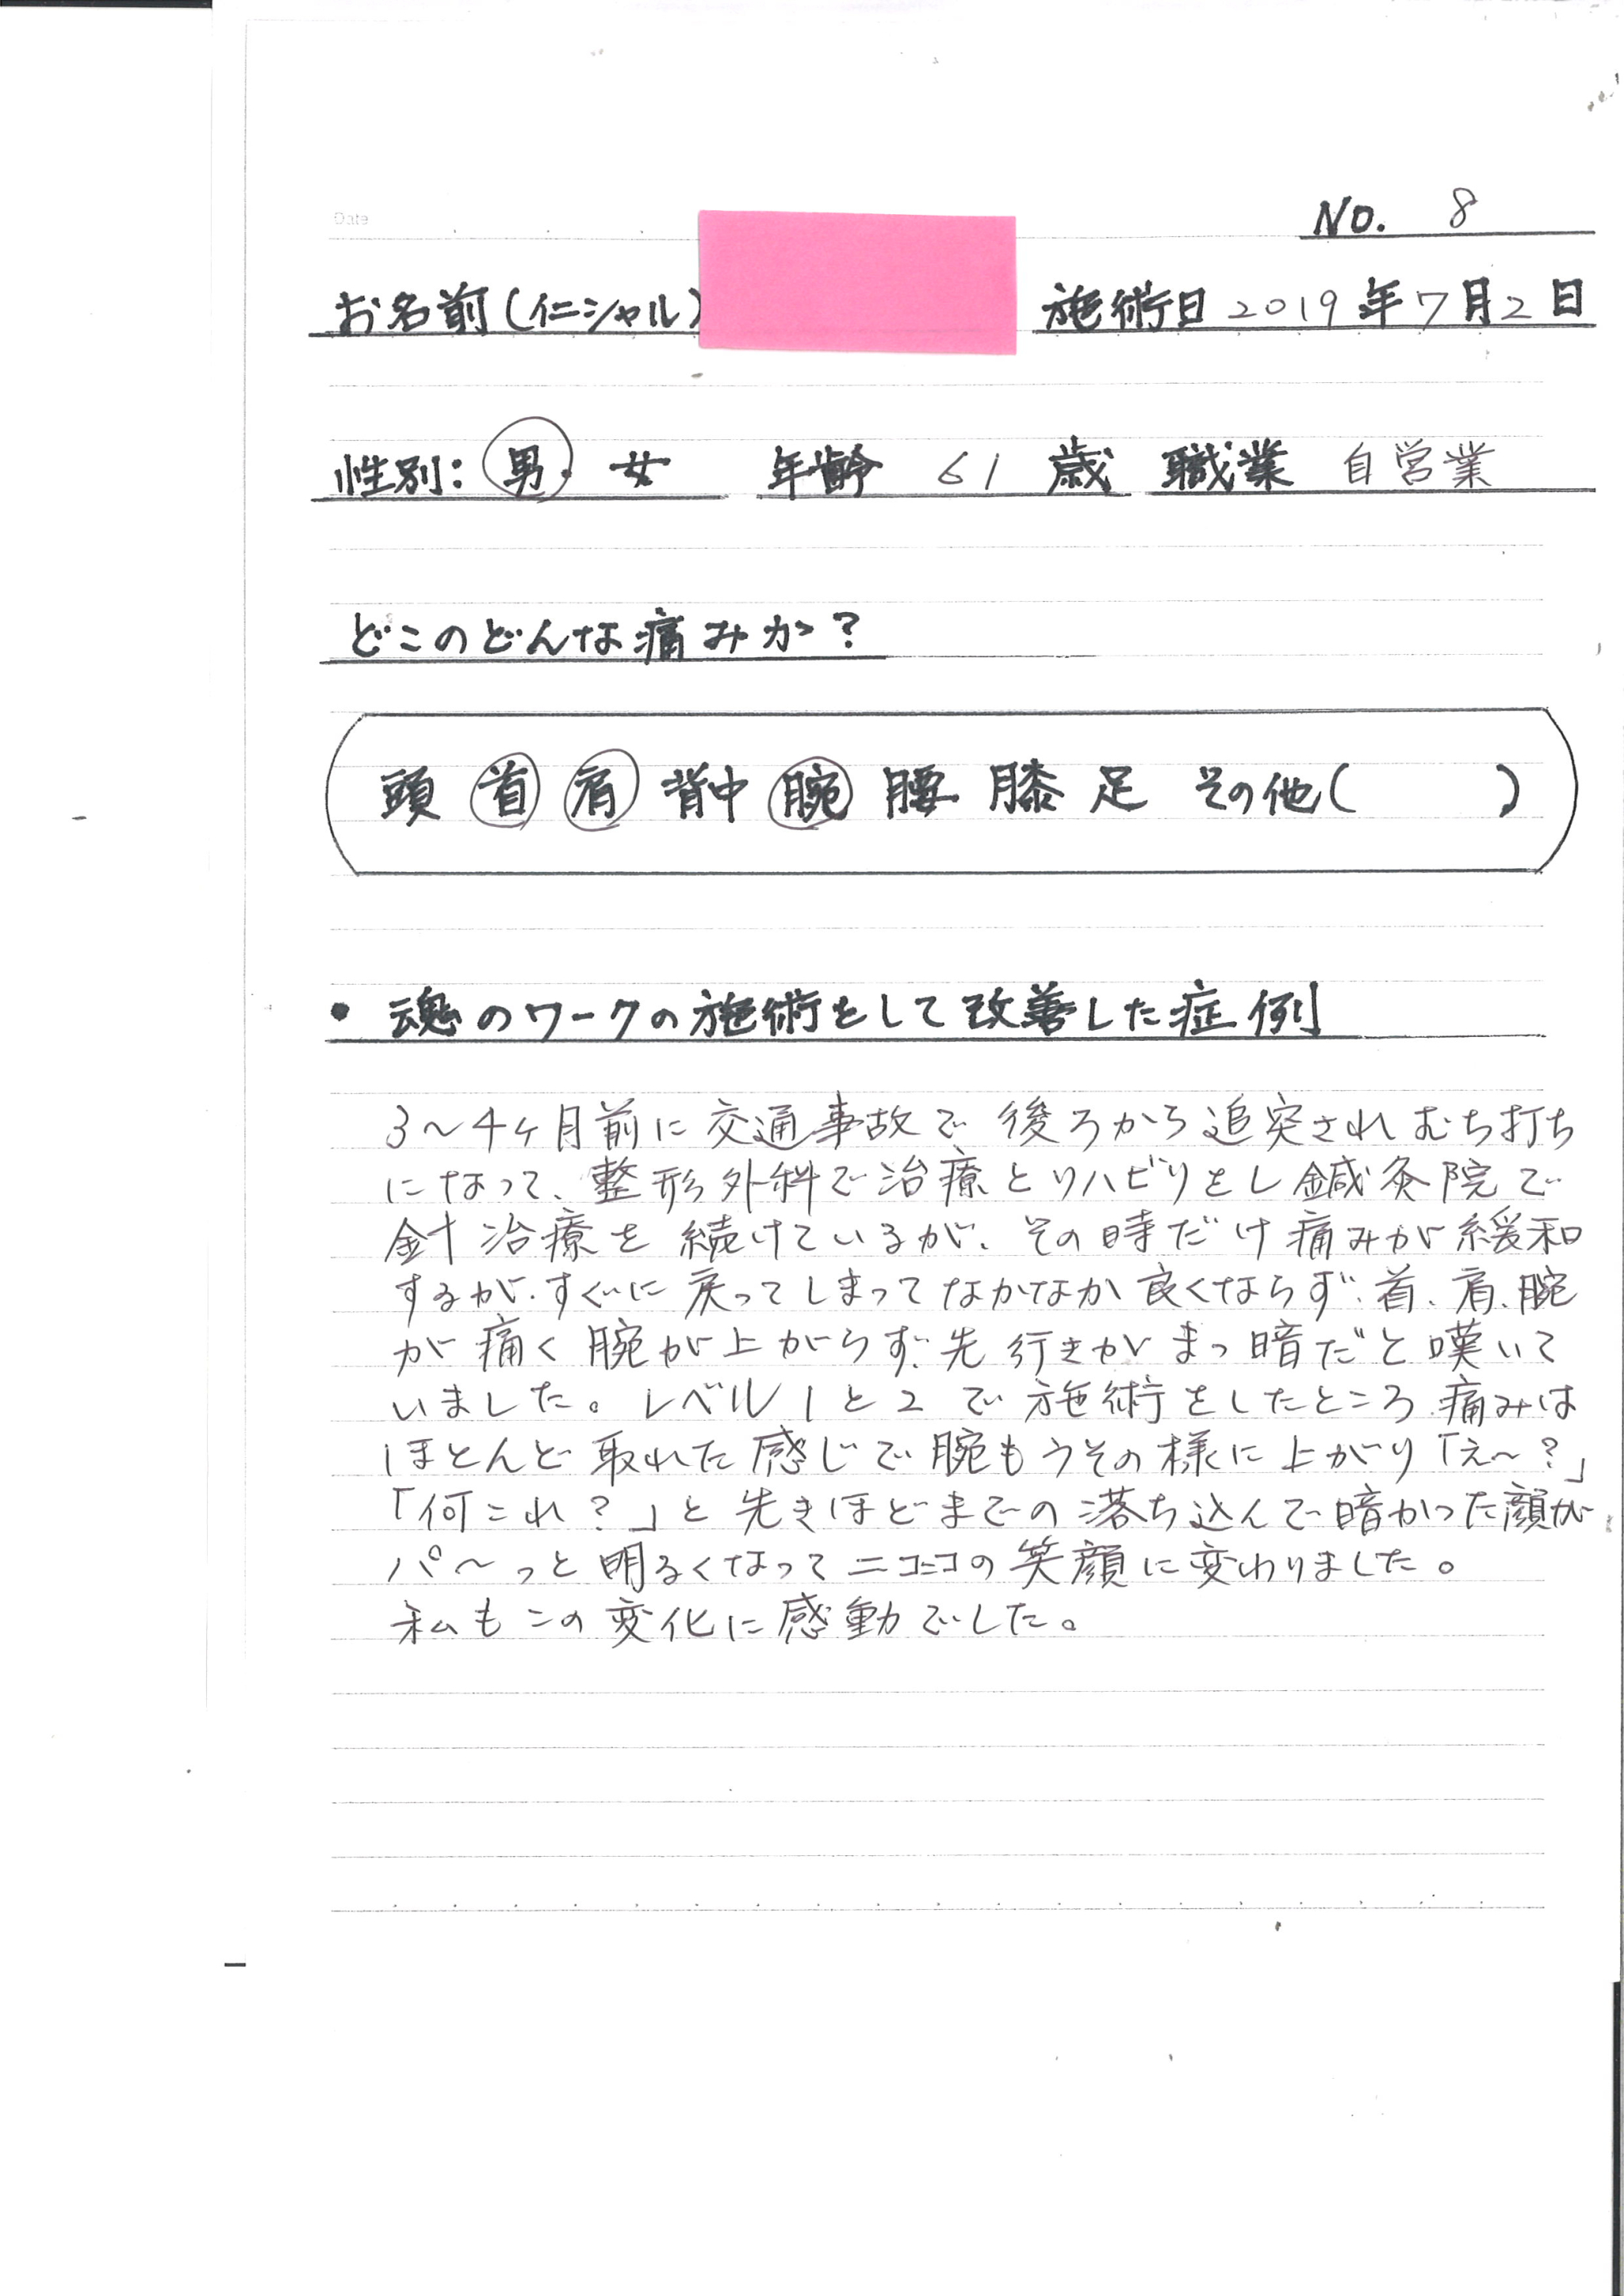 No. 8
Date
お名前(イニシャル) 施術日 2019年7月2日
性別: 男・女 年齢 61 歳 職業 自営業
どこのどんな痛みか?
頭 首 肩 背中 腕 腰 膝 足 その他( )
・魂のワークの施術をして改善した症例
3〜4ヶ月前に交通事故で後ろから追突されむち打ち
になって、整形外科で治療とリハビリをし鍼灸院で
針治療を続けているが、その時だけ痛みが緩和
するが、すぐに戻ってしまってなかなか良くならず、首、肩、腕
が痛く腕が上がらず、先行きがまっ暗だと嘆いて
いました。レベル1と2で施術をしたところ痛みは
ほとんど取れた感じで腕もうその様に上がり「え〜?」
「何これ?」と先きほどまでの落ち込んで暗かった顔が
パ〜っと明るくなってニコニコの笑顔に変わりました。
私もこの変化に感動でした。